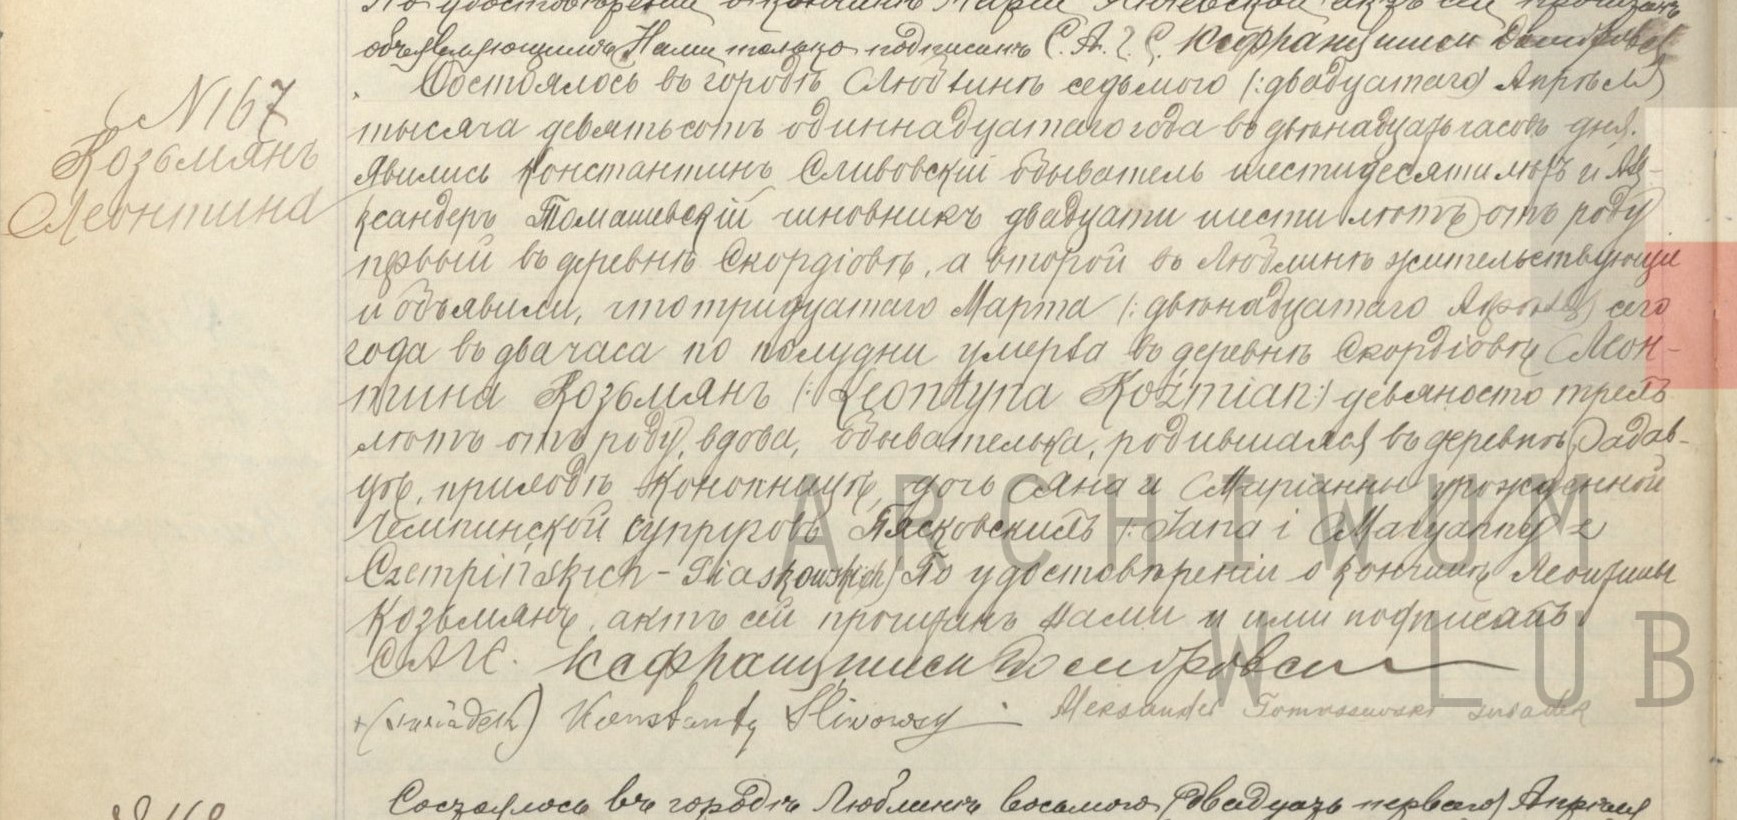 По удостовѣреніи о кончинѣ Маріи актъ сей прочитанъ
объявляющимъ Нами только подписанъ С.А.Г.С. Ксфранцишек Домбровск
Состоялось въ городѣ Люблинѣ седьмого (:двадцатаго) Апрѣля
тысяча девятьсотъ одиннадцатаго года въ двѣнадцать часовъ дня.
№167
Козьмянъ
Леонтина
Явились Константинъ Сливовскій обыватель шестидесяти лѣтъ и Але-
ксандеръ Томашевскій чиновникъ двадцати шести лѣтъ отъ роду
первый въ деревнѣ Скордіовѣ, а второй въ Люблинѣ жительствующіе
и объявили, что тридцатаго Марта (:двѣнадцатаго Апрѣля) сего
года въ два часа по полудни умерла въ деревнѣ Скордіовѣ Леон-
тина Козьмянъ (:Leontyna Koźmian:) девяносто трехъ
лѣтъ отъ роду, вдова, обывателька, родившаяся въ деревнѣ Радав-
цѣ, приходѣ Конопницѣ, дочь Яна и Маріанны урожденной
Чемпинской супруговъ Пясковскихъ (:Jana i Maryanny z
Czempińskich-Piaskowskich) По удостовѣреніи о кончинѣ Леонтины
Козьмянъ, актъ сей прочитанъ Нами и ими подписанъ
САГС. Ксфранцишек Домбровски
+(świadek) Konstanty Śliwowski Aleksander Tomaszewski świadek
Состоялось въ городѣ Люблинѣ восьмого (двадцать перваго) Апрѣля
№168
ARCHIWUM
W LUB